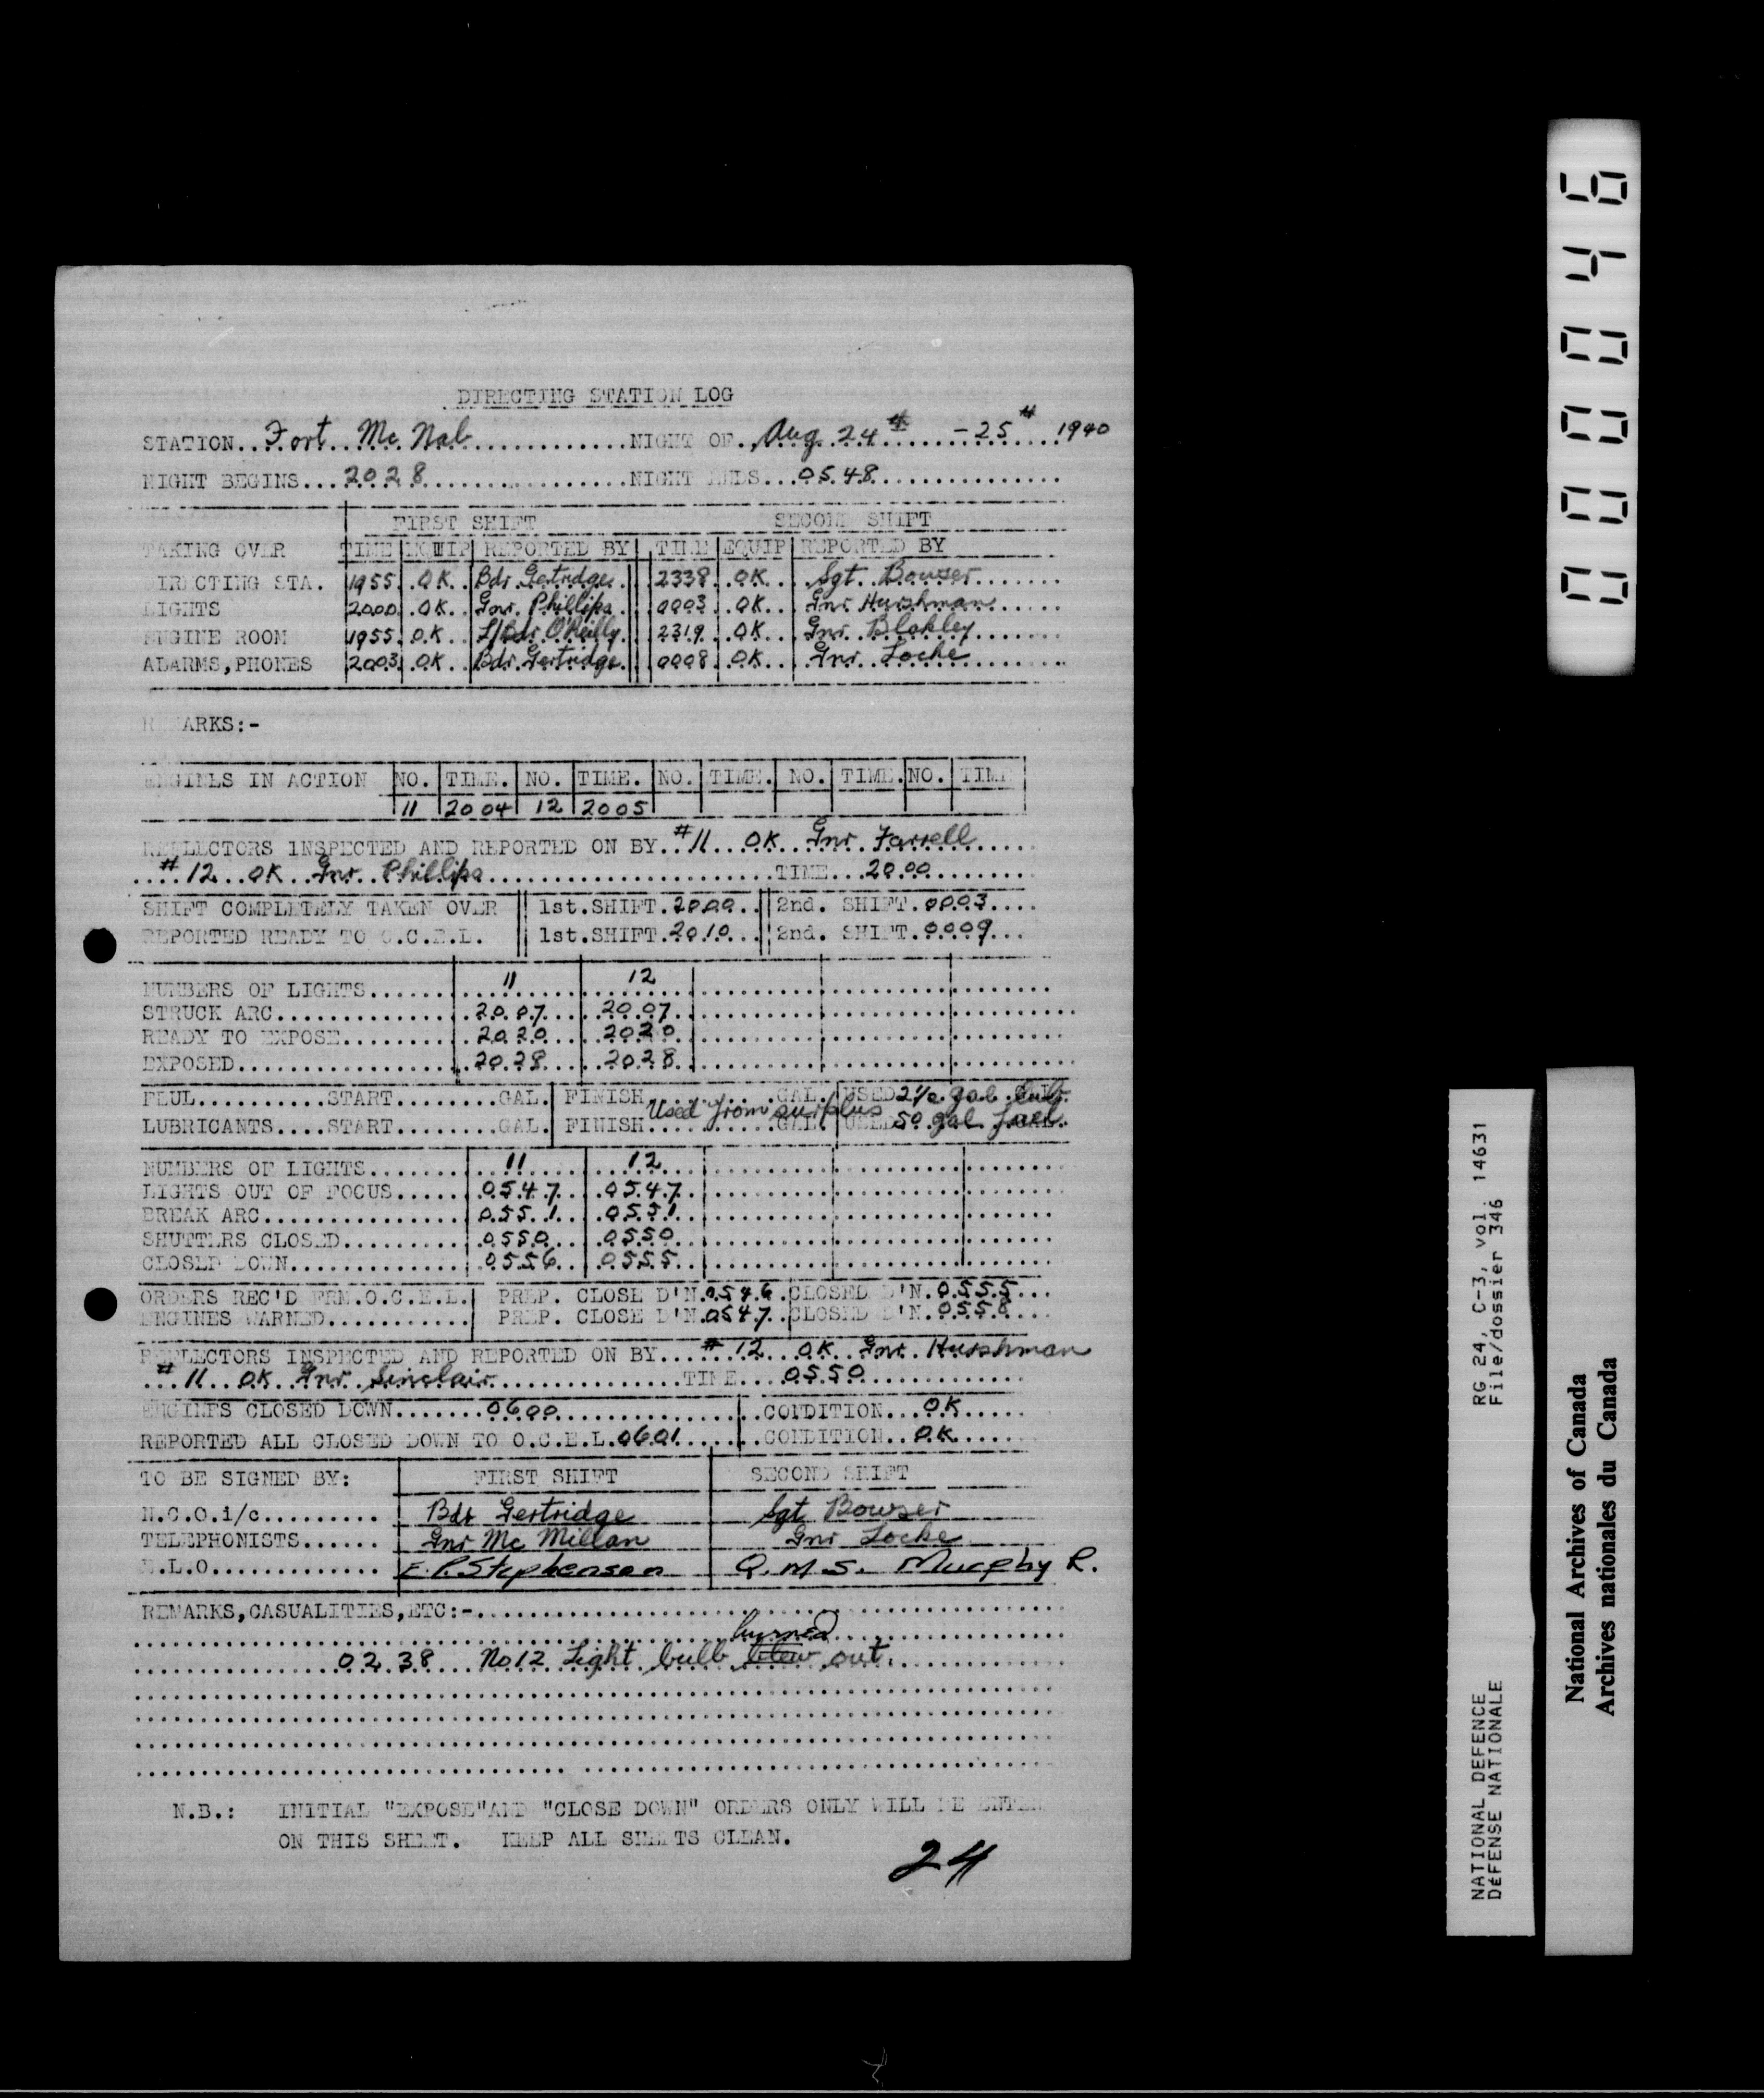 DIRECTING STATION LOG
STATION...Fort Mc Nab..............NIGHT OF..Aug. 24th - 25th 1940
NIGHT BEGINS...2028................NIGHT ENDS...0548...............
FIRST SHIFT SECOND SHIFT
TAKING OVER TIME EQUIP REPORTED BY TIME EQUIP REPORTED BY
DIRECTING STA. 1955 OK Bdr Gertridge 2338 OK Sgt. Bowser
LIGHTS 2000 OK Gnr. Phillips 0003 OK Gnr Hurshman
ENGINE ROOM 1955 OK L/Bdr O'Reilly 2319 OK Gnr. Blakley
ALARMS,PHONES 2003 OK Bdr. Gertridge 0008 OK Gnr. Locke
REMARKS:-
ENGINES IN ACTION NO. TIME. NO. TIME. NO. TIME. NO. TIME. NO. TIME
11 2004 12 2005
REFLECTORS INSPECTED AND REPORTED ON BY..#11 OK Gnr. Farrell
#12 OK Gnr. Phillips TIME...2000
SHIFT COMPLETELY TAKEN OVER 1st.SHIFT.2000.. 2nd. SHIFT.0003....
REPORTED READY TO O.C.E.L. 1st.SHIFT.2010... 2nd. SHIFT.0009...
NUMBERS OF LIGHTS....... 11 12
STRUCK ARC............... 2007 2007
READY TO EXPOSE.......... 2020 2020
EXPOSED.................. 2028 2028
FUEL..........START........GAL. FINISH..........GAL. USED 2 1/2 gal lub.
Used from surplus
LUBRICANTS....START........GAL. FINISH..........GAL. USED 50 gal fuel.
NUMBERS OF LIGHTS........ 11 12
LIGHTS OUT OF FOCUS...... 0547 0547
BREAK ARC................ 0551 0551
SHUTTERS CLOSED.......... 0550 0550
CLOSED DOWN.............. 0556 0555
ORDERS REC'D FRM.O.C.E.L. PREP. CLOSE D'N.0546. CLOSED D'N.0555...
ENGINES WARNED........... PREP. CLOSE D'N.0547. CLOSED D'N.0558...
REFLECTORS INSPECTED AND REPORTED ON BY....#12 OK Gnr. Hurshman
#11 OK Gnr. Sinclair TIME....0550
ENGINES CLOSED DOWN.......0600 CONDITION...OK
REPORTED ALL CLOSED DOWN TO O.C.E.L.0601 CONDITION..OK
TO BE SIGNED BY: FIRST SHIFT SECOND SHIFT
N.C.O.i/c......... Bdr Gertridge Sgt Bowser
TELEPHONISTS...... Gnr Mc Millan Gnr Locke
E.L.O............. E.P. Stephenson Q.M.S. Murphy R.
REMARKS,CASUALITIES,ETC:-
burned
0238 No 12 Light bulb blew out.
N.B.: INITIAL "EXPOSE"AND "CLOSE DOWN" ORDERS ONLY WILL BE ENTER
ON THIS SHEET. KEEP ALL SHEETS CLEAN.
24
000046
RG 24, C-3, vol. 14631
File/dossier 346
NATIONAL DEFENCE
DÉFENSE NATIONALE
National Archives of Canada
Archives nationales du Canada